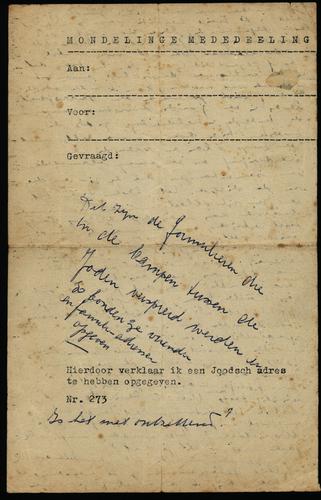 MONDELINGE MEDEDEELING
Aan:
Voor:
Gevraagd:
Dit zijn de formulieren die
in de kampen tussen de
Joden verspreid werden en
Zo konden ze vrienden
en familie adressen
opgeven
Hierdoor verklaar ik een Joodsch adres
te hebben opgegeven.
Nr. 273
Is het niet ontzettend?